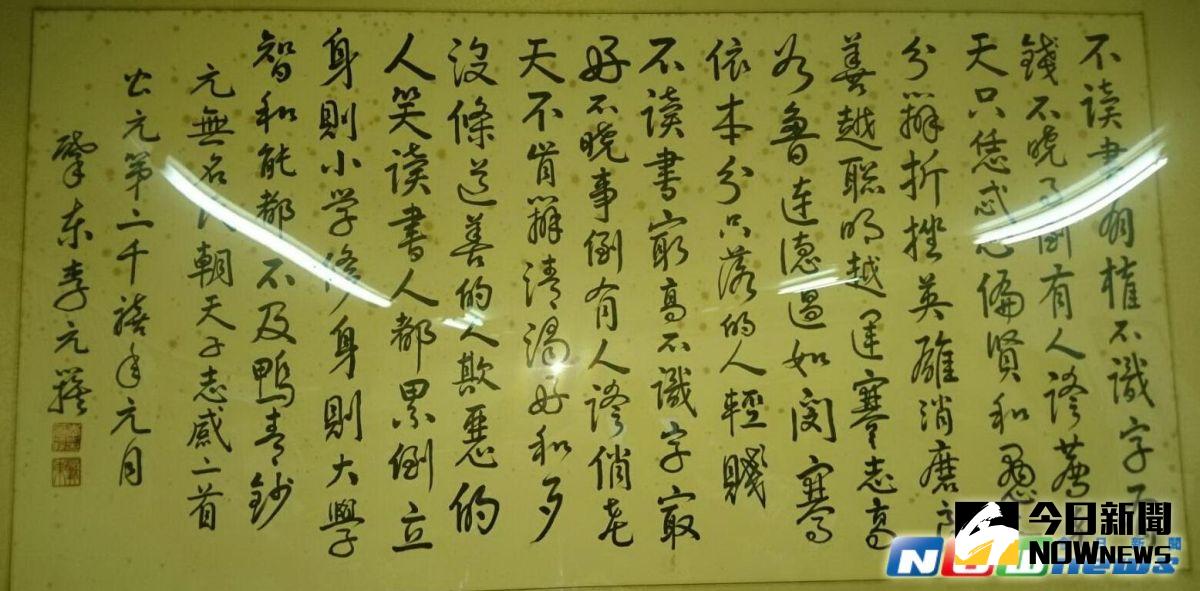 不讀書有權不識字有
錢不曉事倒有人誇薦老
天只恁忒心偏賢和愚
分辨折挫英雄消磨良
善越聰明越運蹇志高
如魯連德過如閔騫
依本分只落的人輕賤
不讀書最高不識字最
好不曉事倒有人誇俏老
天不肯辨清濁好和歹
沒條道善的人欺惡的
人笑讀書人都累倒立
身則小学修身則大學
智和能都不及鴨青鈔
元無名氏朝天子志感二首
公元第二千禧年元月
肇东李元
今日新聞
NOWnews